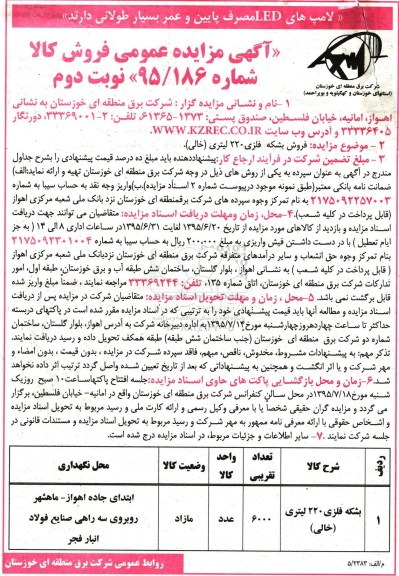 « لامپ های LED مصرف پایین و عمر بسیار طولانی دارند»
«آگهی مزایده عمومی فروش کالا
شماره ۹۵/۱۸۶» نوبت دوم
شرکت برق منطقه ای خوزستان
(استانهای خوزستان و کهگیلویه و بویراحمد)
۱ -نام و نشانی مزایده گزار : شرکت برق منطقه ای خوزستان به نشانی
اهواز، امانیه، خیابان فلسطین، صندوق پستی: ۱۳۷۳-۶۱۳۶۵، تلفن: ۲-۳۳۳۶۹۰۰۱، دورنگار
۳۳۳۳۶۴۰۵ و آدرس وب سایت WWW.KZREC.CO.IR
۲ - موضوع مزایده: فروش بشکه فلزی۲۲۰ لیتری (خالی).
۳ - مبلغ تضمین شرکت در فرآیند ارجاع کار: پیشنهاددهنده باید مبلغ ده درصد قیمت پیشنهادی را بشرح جداول
مندرج در آگهی به عنوان سپرده به یکی از روش های ذیل در وجه شرکت برق منطقه ای خوزستان تهیه و ارائه نماید:الف)
ضمانت نامه بانکی معتبر(طبق نمونه موجود درپیوست شماره ۲ اسناد مزایده).ب)واریز وجه نقد به حساب سیبا به شماره
۲۱۷۵۰۹۲۲۵۷۰۰۳ به نام تمرکز وجوه سپرده های شرکت برق‌منطقه‌ای خوزستان نزد بانک ملی شعبه مرکزی اهواز
(قابل پرداخت در کلیه شعب).۴-محل، زمان ومهلت دریافت اسناد مزایده: متقاضیان می توانند جهت دریافت
اسناد مزایده و بازدید از کالاهای مورد مزایده از تاریخ ۱۳۹۵/۶/۲۰ لغایت ۱۳۹۵/۶/۳۱ در ساعات اداری ۸ الی ۱۴ ( به جز
ایام تعطیل ) با در دست داشتن فیش واریزی به مبلغ ۲۰۰،۰۰۰ ریال به حساب سیبا به شماره ۲۱۷۵۰۹۲۳۰۱۰۰۴
بنام تمرکز وجوه حق انشعاب و سایر درآمدهای متفرقه شرکت برق منطقه ای خوزستان نزدبانک ملی شعبه مرکزی اهواز
( قابل پرداخت در کلیه شعب ) به نشانی اهواز ، بلوار گلستان، ساختمان شش طبقه آب و برق خوزستان، طبقه اول، امور
تدارکات شرکت برق خوزستان، اتاق شماره ۱۳۵، تلفن: ۳۳۳۶۹۲۴۴ مراجعه نمایند ، ضمناً مبلغ واریز شده
قابل برگشت نمی باشد. ۵-محل ، زمان و مهلت تحویل اسناد مزایده: متقاضیان شرکت در مزایده پس از دریافت
اسناد مزایده و مطالعه آنها باید قیمت پیشنهادی خود را به ترتیبی که در اسناد مزایده مقرر شده است در پاکتهای دربسته
حداکثر تا ساعت چهاردهروزچهارشنبه مورخ۱۳۹۵/۷/۱۴به اداره دبیرخانه به آدرس اهواز، بلوار گلستان، ساختمان
شماره دو شرکت برق منطقه ای خوزستان (جنب ساختمان شش طبقه) طبقه همکف تحویل داده و رسید دریافت نمایند.
تذکر مهم: به پیشنهادات مشروط، مخدوش، ناقص، مبهم، فاقد سپرده شرکت در مزایده ، بدون قیمت ، بدون امضاء و
مهر شرکت و یا اثر انگشت و همچنین به پیشنهاداتی که بعد از تاریخ تعیین شده واصل گردد ترتیب اثر داده نخواهد
شد.۶-زمان و محل بازگشایی پاکت های حاوی اسناد مزایده:جلسه افتتاح پاکتهاساعت۱۰ صبح روزیک
شنبه مورخ۱۳۹۵/۷/۱۸در محل سالن کنفرانس شرکت برق منطقه ای خوزستان واقع در امانیه- خیابان فلسطین، برگزار
می گردد و مزایده گران حقیقی شخصاً یا با معرفی وکیل رسمی و ارائه کارت ملی و رسید مربوط به تحویل اسناد مزایده
و اشخاص حقوقی با ارائه معرفی نامه ممهور به مهر شرکت و رسید مربوط به تحویل اسناد مزایده و مستندات قانونی در
جلسه شرکت نمایند .۷- سایر اطلاعات و جزئیات مربوط، در اسناد مزایده درج شده است.
ردیف شرح کالا تعداد تقریبی واحد کالا وضعیت کالا محل نگهداری
۱ بشکه فلزی۲۲۰ لیتری (خالی) ۶۰۰۰ عدد مازاد ابتدای جاده اهواز-ماهشهر روبروی سه راهی صنایع فولاد انبار فجر
م/الف: ۵/۲۳۸۲
روابط عمومی شرکت برق منطقه ای خوزستان